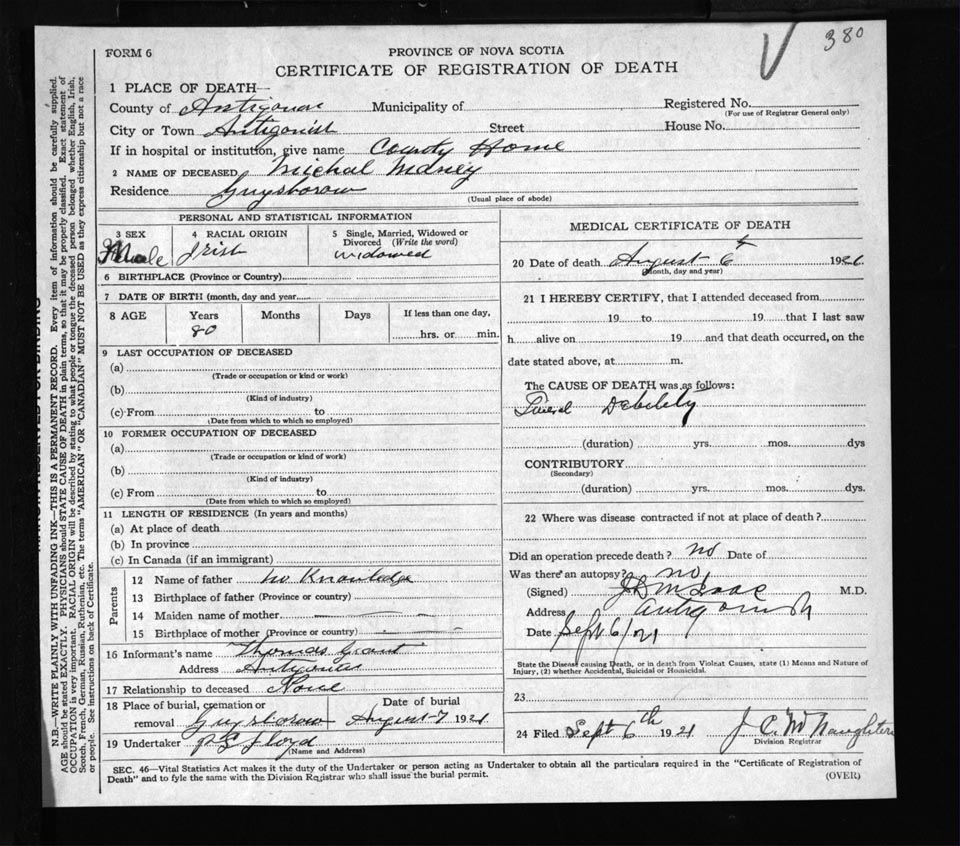 380
FORM 6
PROVINCE OF NOVA SCOTIA
CERTIFICATE OF REGISTRATION OF DEATH
1 PLACE OF DEATH—
County of Municipality of Registered No.
(For use of Registrar General only)
City or Town Antigonish Street House No.
If in hospital or institution, give name County Home
2 NAME OF DECEASED Michal
Residence Guysborow
(Usual place of abode)
PERSONAL AND STATISTICAL INFORMATION
3 SEX
4 RACIAL ORIGIN
5 Single, Married, Widowed or Divorced (Write the word)
Male Irish widowed
6 BIRTHPLACE (Province or Country)
7 DATE OF BIRTH (month, day and year
8 AGE Years Months Days If less than one day,
80 hrs. or min.
9 LAST OCCUPATION OF DECEASED
(a)
(Trade or occupation or kind or work)
(b)
(Kind of industry)
(c) From to
(Date from which to which so employed)
10 FORMER OCCUPATION OF DECEASED
(a)
(Trade or occupation or kind of work)
(b)
(Kind of industry)
(c) From to
(Date from which to which so employed)
11 LENGTH OF RESIDENCE (In years and months)
(a) At place of death
(b) In province
(c) In Canada (if an immigrant)
Parents
12 Name of father no Knowledge
13 Birthplace of father (Province or country)
14 Maiden name of mother
15 Birthplace of mother (Province or country)
16 Informant's name Thomas Grant
Address
17 Relationship to deceased None
18 Place of burial, cremation or Date of burial
removal Guysborow August 7 1921
19 Undertaker Floyd
(Name and Address)
MEDICAL CERTIFICATE OF DEATH
20 Date of death August 6th 1921
(Month, day and year)
21 I HEREBY CERTIFY, that I attended deceased from
19 to 19 that I last saw
h alive on 19 and that death occurred, on the
date stated above, at m.
The CAUSE OF DEATH was as follows:
Debility
(duration) yrs. mos. dys
CONTRIBUTORY
(Secondary)
(duration) yrs. mos. dys.
22 Where was disease contracted if not at place of death?
Did an operation precede death? no Date of
Was there an autopsy? no
(Signed) M.D.
Address Antigonish
Date Sept 6/21
State the Disease causing Death, or in death from Violent Causes, state (1) Means and Nature of
Injury, (2) whether Accidental, Suicidal or Homicidal.
23
24 Filed Sept 6th 1921 J. C.
Division Registrar
SEC. 46—Vital Statistics Act makes it the duty of the Undertaker or person acting as Undertaker to obtain all the particulars required in the "Certificate of Registration of
Death" and to fyle the same with the Division Registrar who shall issue the burial permit.
(OVER)
N.B.—WRITE PLAINLY WITH UNFADING INK—THIS IS A PERMANENT RECORD. Every item of information should be carefully supplied.
AGE should be stated EXACTLY. PHYSICIANS should STATE CAUSE OF DEATH in plain terms, so that it may be properly classified. Exact statement of
OCCUPATION is very important. RACIAL ORIGIN will be described by stating to what people or tongue the deceased person belonged whether English, Irish,
Scotch, French, German, Russian, Ruthenian, etc. The terms "AMERICAN" OR "CANADIAN" MUST NOT BE USED as they express citizenship but not a race
or people. See instructions on back of Certificate.